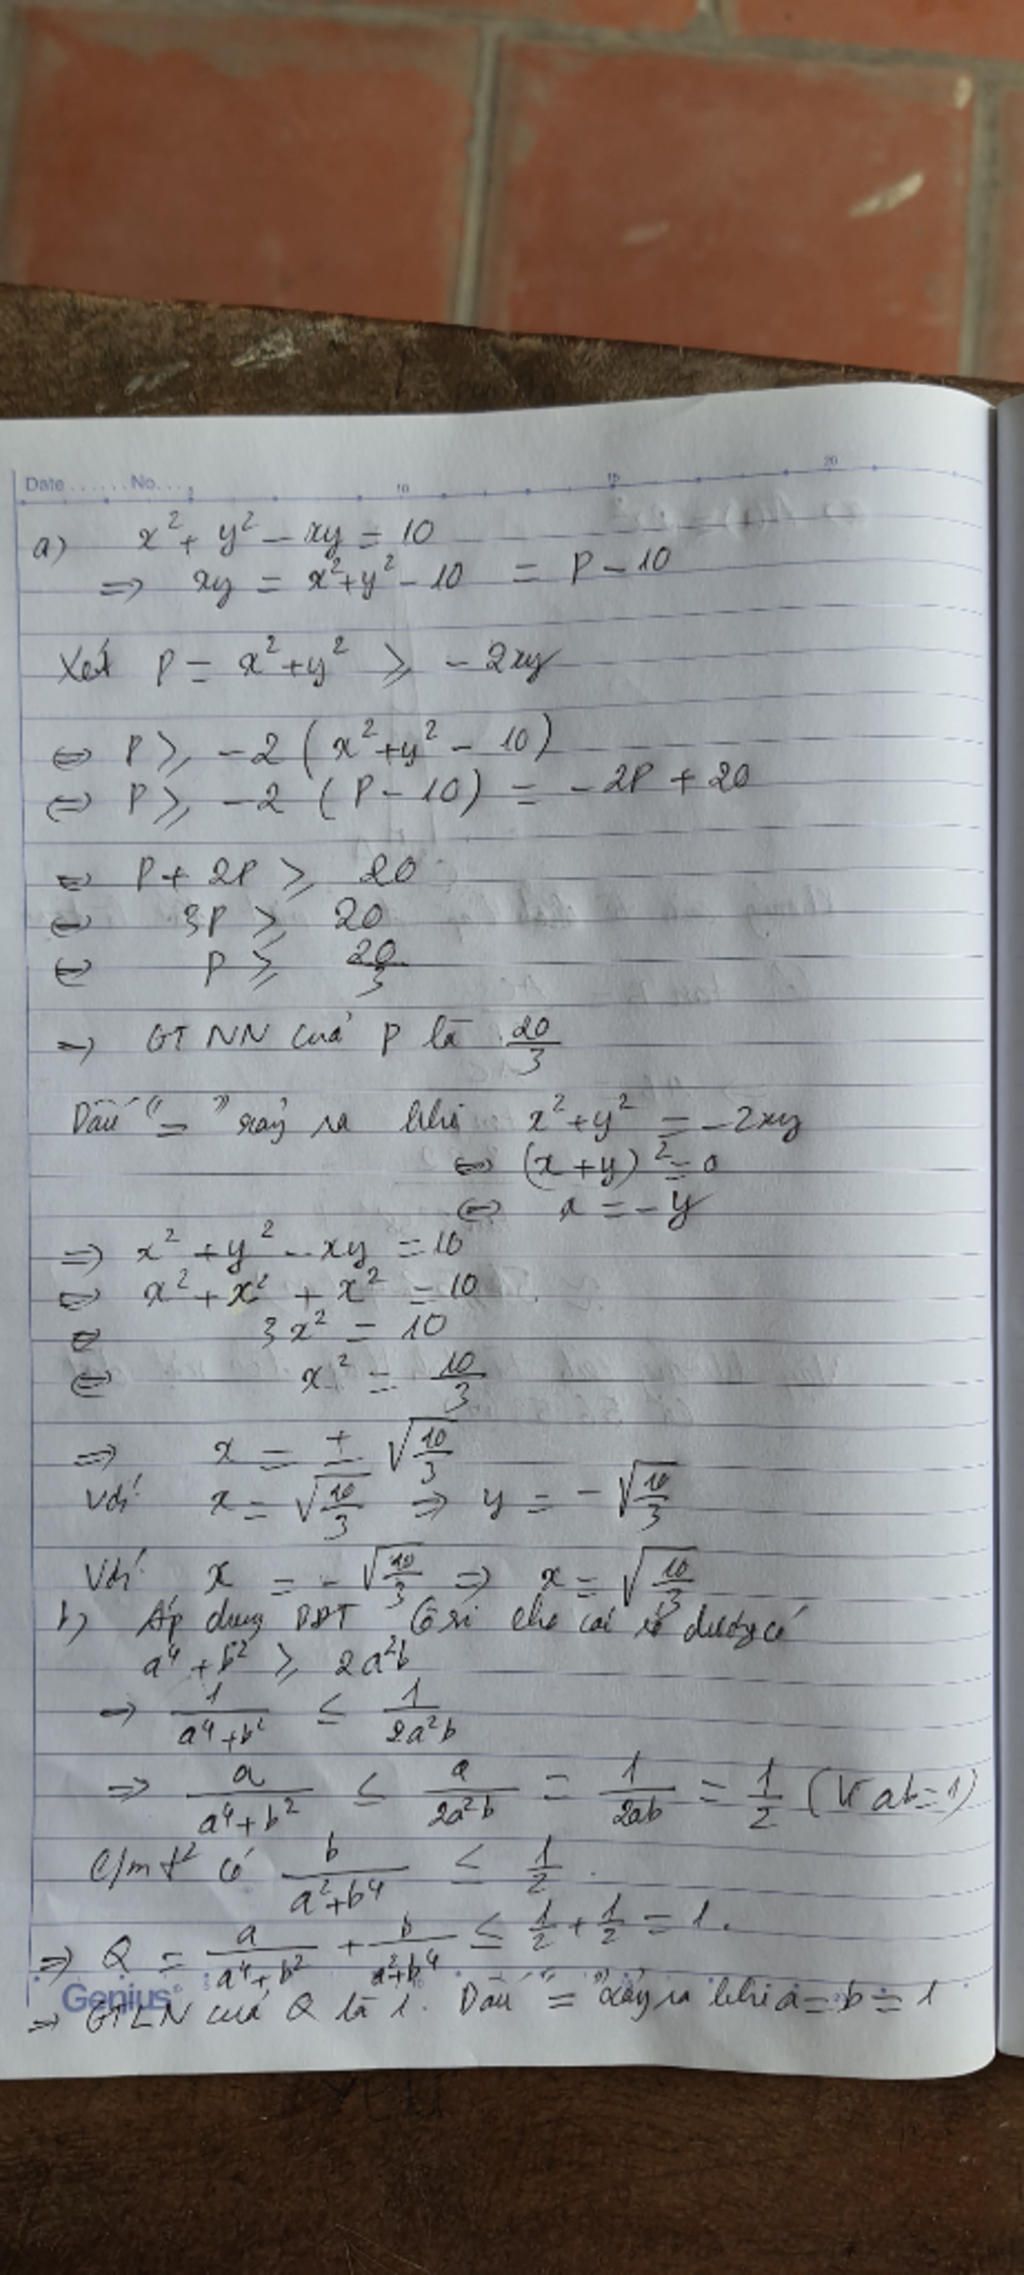 Date ...... No. ....
5 10 15 20
a) x² + y² - xy = 10
=> xy = x² + y² - 10 = P - 10
Xét P = x² + y² ≥ - 2xy
<=> P ≥ -2 (x² + y² - 10)
<=> P ≥ -2 (P - 10) = -2P + 20
<=> P + 2P ≥ 20
<=> 3P ≥ 20
<=> P ≥ 20/3
=> GTNN của P là 20/3
Dấu "=" xảy ra khi x² + y² = -2xy
<=> (x + y)² = 0
<=> x = -y
=> x² + y² - xy = 10
<=> x² + x² + x² = 10
<=> 3x² = 10
<=> x² = 10/3
=> x = ± √(10/3)
Với x = √(10/3) => y = - √(10/3)
Với x = - √(10/3) => x = √(10/3)
b) Áp dụng BĐT Cô si cho các số dương có
a⁴ + b² ≥ 2a²b
=> 1/(a⁴ + b²) ≤ 1/(2a²b)
=> a/(a⁴ + b²) ≤ a/(2a²b) = 1/(2ab) = 1/2 (Vì ab = 1)
C/m t² có b/(a² + b⁴) ≤ 1/2.
=> Q = a/(a⁴ + b²) + b/(a² + b⁴) ≤ 1/2 + 1/2 = 1.
Genius
=> GTLN của Q là 1. Dấu "=" xảy ra khi a = b = 1